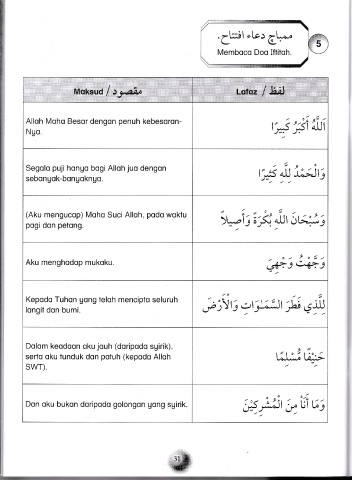 ممباچ دعاء افتتاح.
Membaca Doa Iftitah.
5
Maksud / مقصود
Lafaz / لفظ
Allah Maha Besar dengan penuh kebesaran-
Nya.
اَللَّهُ أَكْبَرُ كَبِيرًا
Segala puji hanya bagi Allah jua dengan
sebanyak-banyaknya.
وَالْحَمْدُ لِلَّهِ كَثِيرًا
(Aku mengucap) Maha Suci Allah, pada waktu
pagi dan petang.
وَسُبْحَانَ اللَّهِ بُكْرَةً وَأَصِيلاً
Aku menghadap mukaku.
وَجَّهْتُ وَجْهِيَ
Kepada Tuhan yang telah mencipta seluruh
langit dan bumi.
لِلَّذِي فَطَرَ السَّمَـٰوَاتِ وَالْأَرْضَ
Dalam keadaan aku jauh (daripada syirik),
serta aku tunduk dan patuh (kepada Allah
SWT).
حَنِيْفًا مُّسْلِمًا
Dan aku bukan daripada golongan yang syirik.
وَمَا أَنَاْ مِنَ الْمُشْرِكِيْنَ
31